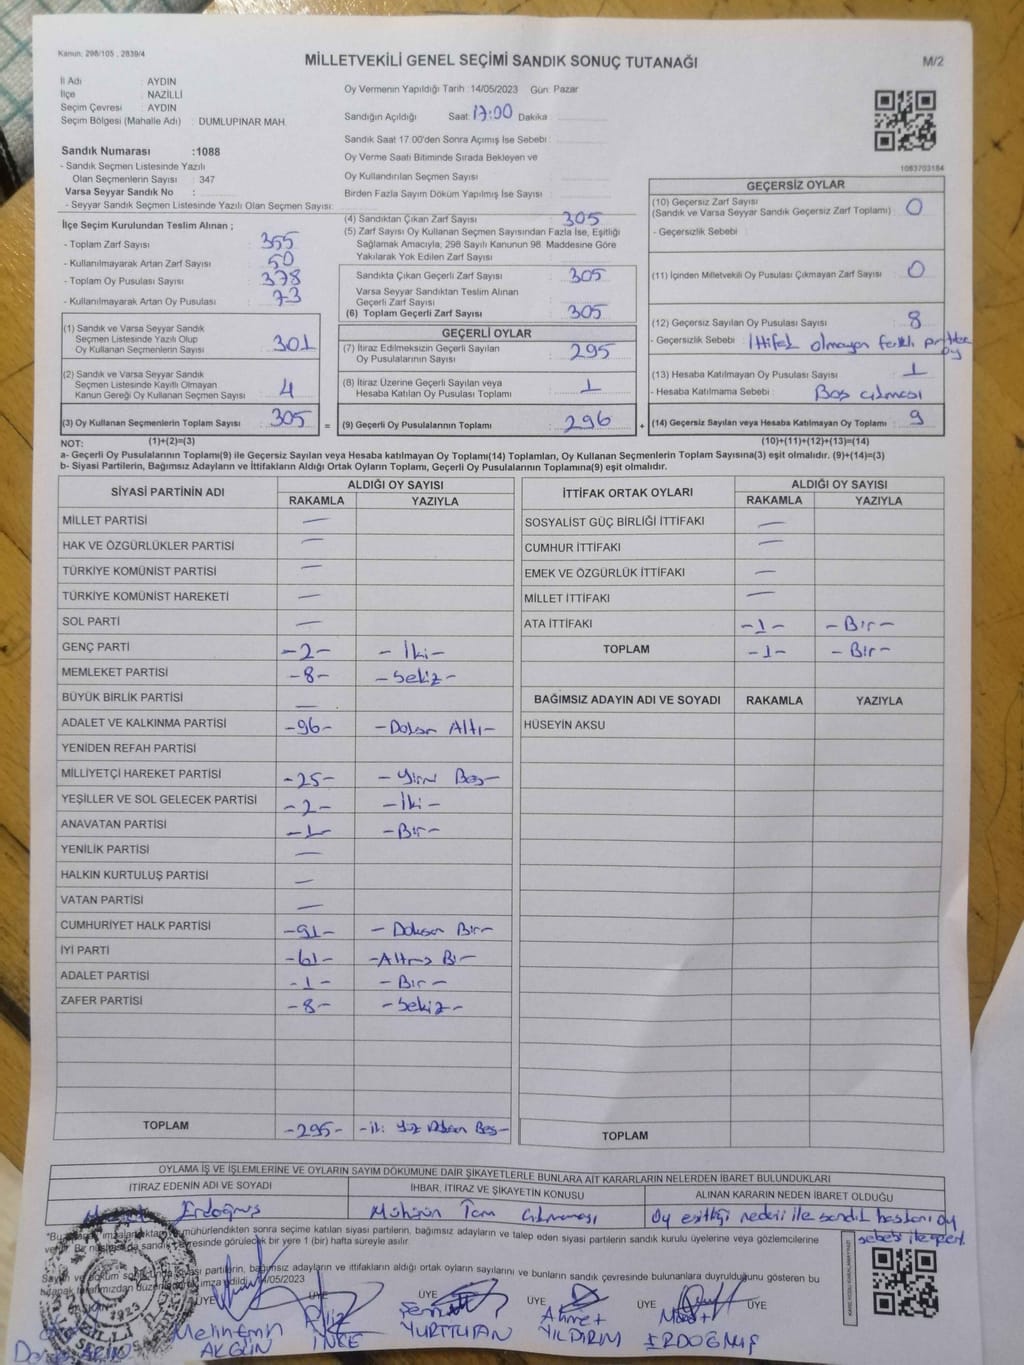 Kanun: 298/105 , 2839/4
MİLLETVEKİLİ GENEL SEÇİMİ SANDIK SONUÇ TUTANAĞI
M/2
İl Adı : AYDIN
İlçe : NAZİLLİ
Seçim Çevresi : AYDIN
Seçim Bölgesi (Mahalle Adı) : DUMLUPINAR MAH.
Sandık Numarası :1088
- Sandık Seçmen Listesinde Yazılı
Olan Seçmenlerin Sayısı : 347
Varsa Seyyar Sandık No :
- Seyyar Sandık Seçmen Listesinde Yazılı Olan Seçmen Sayısı:
Oy Vermenin Yapıldığı Tarih :14/05/2023 Gün: Pazar
Sandığın Açıldığı Saat 17:00 Dakika
Sandık Saat 17:00'den Sonra Açımış İse Sebebi :
Oy Verme Saati Bitiminde Sırada Bekleyen ve
Oy Kullandırılan Seçmen Sayısı
Birden Fazla Sayım Döküm Yapılmış İse Sayısı :
1083703184
İlçe Seçim Kurulundan Teslim Alınan ;
- Toplam Zarf Sayısı : 355
- Kullanılmayarak Artan Zarf Sayısı : 50
- Toplam Oy Pusulası Sayısı : 378
- Kullanılmayarak Artan Oy Pusulası : 73
(1) Sandık ve Varsa Seyyar Sandık
Seçmen Listesinde Yazılı Olup
Oy Kullanan Seçmenlerin Sayısı 301
(2) Sandık ve Varsa Seyyar Sandık
Seçmen Listesinde Kayıtlı Olmayan
Kanun Gereği Oy Kullanan Seçmen Sayısı 4
(3) Oy Kullanan Seçmenlerin Toplam Sayısı 305
(1)+(2)=(3)
(4) Sandıktan Çıkan Zarf Sayısı 305
(5) Zarf Sayısı Oy Kullanan Seçmen Sayısından Fazla İse, Eşitliği
Sağlamak Amacıyla, 298 Sayılı Kanunun 98. Maddesine Göre
Yakılarak Yok Edilen Zarf Sayısı
Sandıkta Çıkan Geçerli Zarf Sayısı 305
Varsa Seyyar Sandıktan Teslim Alınan
Geçerli Zarf Sayısı
(6) Toplam Geçerli Zarf Sayısı 305
GEÇERLİ OYLAR
(7) İtiraz Edilmeksizin Geçerli Sayılan
Oy Pusulalarının Sayısı 295
(8) İtiraz Üzerine Geçerli Sayılan veya
Hesaba Katılan Oy Pusulası Toplamı 1
= (9) Geçerli Oy Pusulalarının Toplamı 296 +
GEÇERSİZ OYLAR
(10) Geçersiz Zarf Sayısı
(Sandık ve Varsa Seyyar Sandık Geçersiz Zarf Toplamı) 0
- Geçersizlik Sebebi :
(11) İçinden Milletvekili Oy Pusulası Çıkmayan Zarf Sayısı 0
(12) Geçersiz Sayılan Oy Pusulası Sayısı 8
- Geçersizlik Sebebi : İttifak olmayan farklı partilere oy
(13) Hesaba Katılmayan Oy Pusulası Sayısı 1
- Hesaba Katılmama Sebebi : Boş çıkması
(14) Geçersiz Sayılan veya Hesaba Katılmayan Oy Toplamı 9
(10)+(11)+(12)+(13)=(14)
NOT:
a- Geçerli Oy Pusulalarının Toplamı(9) ile Geçersiz Sayılan veya Hesaba katılmayan Oy Toplamı(14) Toplamları, Oy Kullanan Seçmenlerin Toplam Sayısına(3) eşit olmalıdır. (9)+(14)=(3)
b- Siyasi Partilerin, Bağımsız Adayların ve İttifakların Aldığı Ortak Oyların Toplamı, Geçerli Oy Pusulalarının Toplamına(9) eşit olmalıdır.
SİYASİ PARTİNİN ADI ALDIĞI OY SAYISI
RAKAMLA YAZIYLA
MİLLET PARTİSİ —
HAK VE ÖZGÜRLÜKLER PARTİSİ —
TÜRKİYE KOMÜNİST PARTİSİ —
TÜRKİYE KOMÜNİST HAREKETİ —
SOL PARTİ —
GENÇ PARTİ -2- - İki -
MEMLEKET PARTİSİ -8- - Sekiz -
BÜYÜK BİRLİK PARTİSİ —
ADALET VE KALKINMA PARTİSİ -96- - Doksan Altı -
YENİDEN REFAH PARTİSİ
MİLLİYETÇİ HAREKET PARTİSİ -25- - Yirmi Beş -
YEŞİLLER VE SOL GELECEK PARTİSİ -2- - İki -
ANAVATAN PARTİSİ -1- - Bir -
YENİLİK PARTİSİ —
HALKIN KURTULUŞ PARTİSİ —
VATAN PARTİSİ —
CUMHURİYET HALK PARTİSİ -91- - Doksan Bir -
İYİ PARTİ -61- - Altmış Bir -
ADALET PARTİSİ -1- - Bir -
ZAFER PARTİSİ -8- - Sekiz -
TOPLAM -295- - İki Yüz Doksan Beş -
İTTİFAK ORTAK OYLARI ALDIĞI OY SAYISI
RAKAMLA YAZIYLA
SOSYALİST GÜÇ BİRLİĞİ İTTİFAKI —
CUMHUR İTTİFAKI —
EMEK VE ÖZGÜRLÜK İTTİFAKI —
MİLLET İTTİFAKI —
ATA İTTİFAKI -1- - Bir -
TOPLAM -1- - Bir -
BAĞIMSIZ ADAYIN ADI VE SOYADI RAKAMLA YAZIYLA
HÜSEYİN AKSU
TOPLAM
OYLAMA İŞ VE İŞLEMLERİNE VE OYLARIN SAYIM DÖKÜMÜNE DAİR ŞİKAYETLERLE BUNLARA AİT KARARLARIN NELERDEN İBARET BULUNDUKLARI
İTİRAZ EDENİN ADI VE SOYADI İHBAR, İTİRAZ VE ŞİKAYETİN KONUSU ALINAN KARARIN NEDEN İBARET OLDUĞU
Erdoğmuş Mührün Tam çıkmaması Oy eşitliği nedeni ile sandık başkanı oy sebebi ile
mühürlendikten sonra seçime katılan siyasi partilerin, bağımsız adayların ve talep eden siyasi partilerin sandık kurulu üyelerine veya gözlemcilerine
çevresinde görülecek bir yere 1 (bir) hafta süreyle asılır.
partilerin, bağımsız adayların ve ittifakların aldığı ortak oyların sayılarını ve bunların sandık çevresinde bulunanlara duyrulduğunu gösteren bu
imza edildi. 14/05/2023
ÜYE ÜYE ÜYE ÜYE ÜYE
Mehmet Emin AKGÜN
Filiz İNCE
YURTTUTAN
Ahmet YILDIRIM
ERDOĞMUŞ